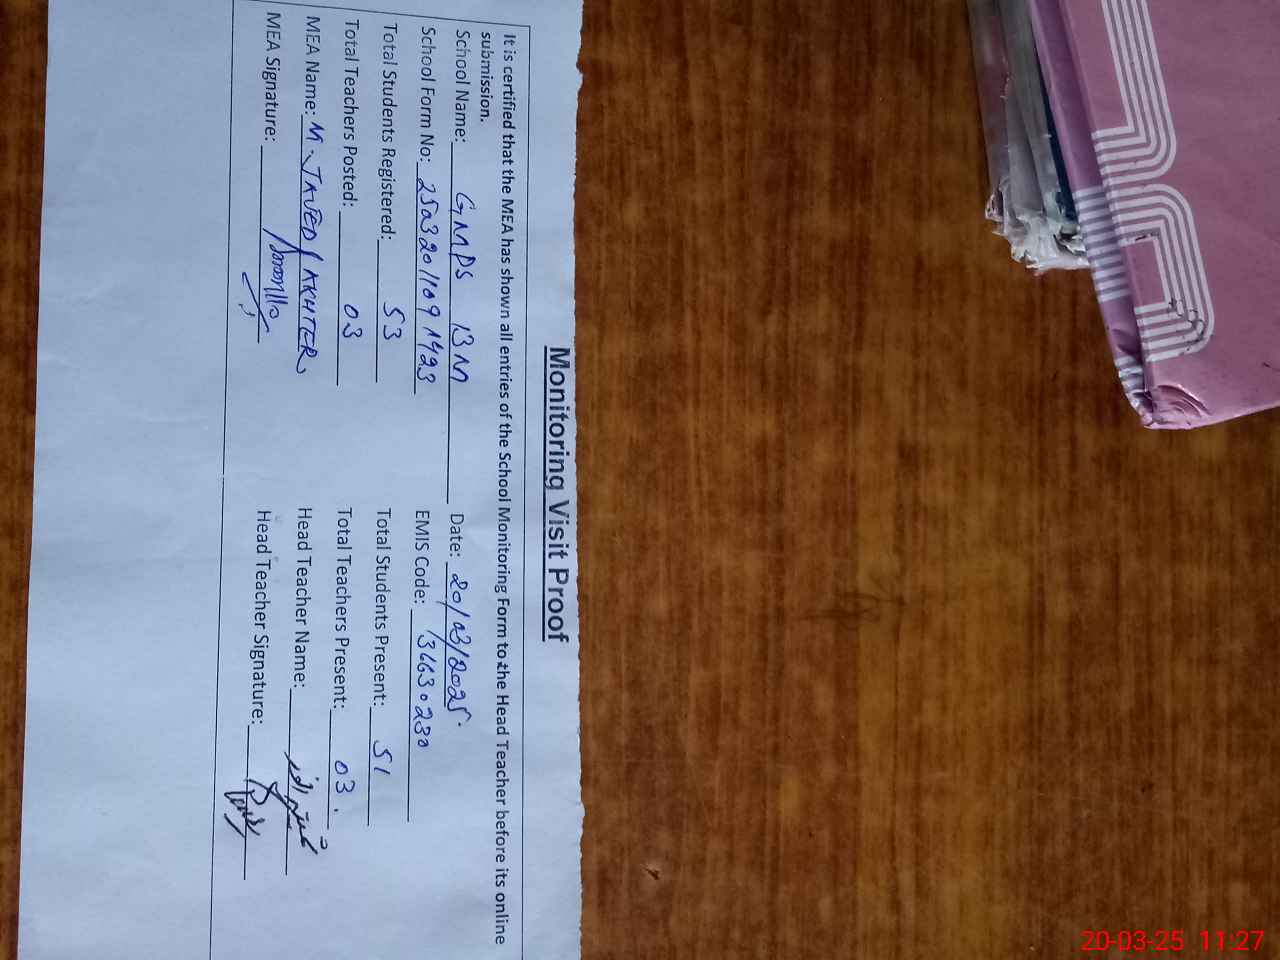 Monitoring Visit Proof
It is certified that the MEA has shown all entries of the School Monitoring Form to the Head Teacher before its online
submission.
School Name: GMPS 13M Date: 20/03/2025
School Form No: 25a3201109 1423 EMIS Code: 13463 0230
Total Students Registered: 53 Total Students Present: 51
Total Teachers Posted: 03 Total Teachers Present: 03.
MEA Name: M. JAVED AKHTER Head Teacher Name:
MEA Signature: Head Teacher Signature:
20-03-25 11:27